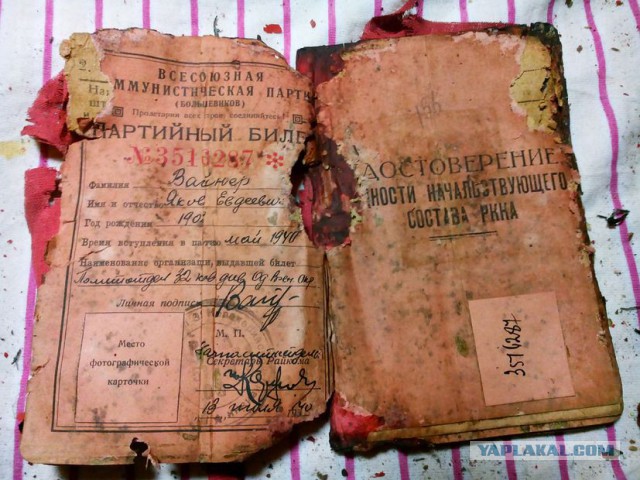 ВСЕСОЮЗНАЯ
ММУНИСТИЧЕСКАЯ ПАРТИ
(БОЛЬШЕВИКОВ)
Пролетарии всех стран, соединяйтесь!
ПАРТИЙНЫЙ БИЛЕ
№3516287 *
Фамилия Вайнер
Имя и отчество Яков Евдеевич
Год рождения 190
Время вступления в партию май 1940
Наименование организации, выдавшей билет
Политотдел 32 кав див Од
Личная подпись
М. П.
Место
фотографической
карточки
Секретарь Райкома
13 40
156
ДОСТОВЕРЕНИЕ
НОСТИ НАЧАЛЬСТВУЮЩЕГО
СОСТАВА РККА
3516287
YAPLAKAL.COM